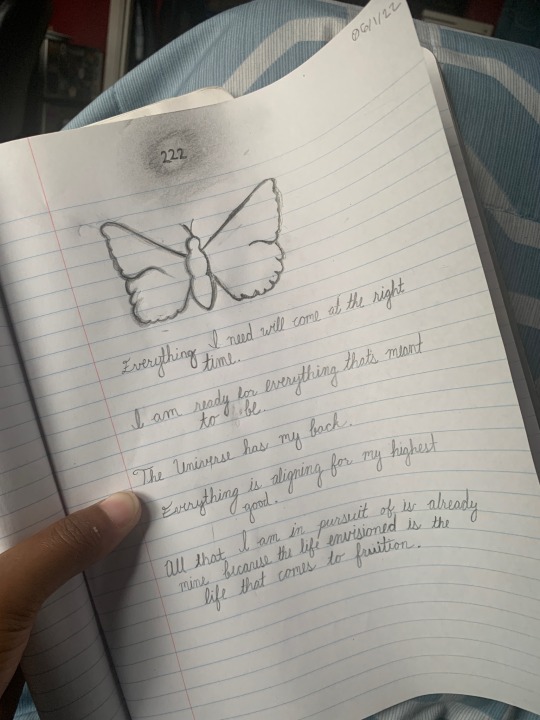 06/1/22
222
Everything I need will come at the right
time.
I am ready for everything thats meant
to be.
The Universe has my back.
Everything is aligning for my highest
good.
All that I am in pursuit of is already
mine because the life envisioned is the
life that comes to fruition.